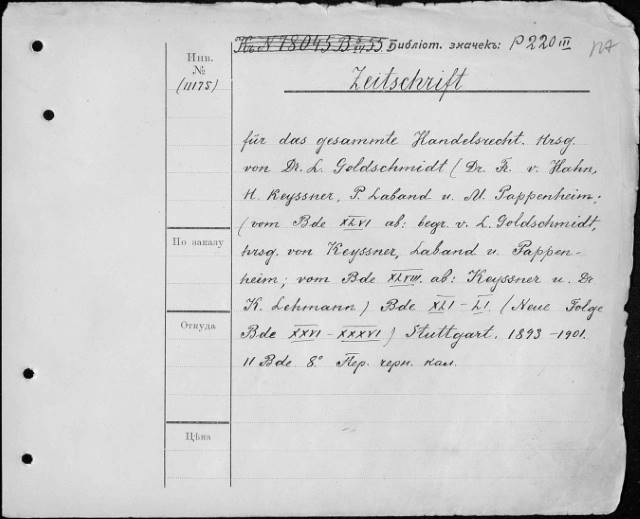 Къ N 18045 В Библіот. значекъ: P 220 III
Инв. № (11175)
Zeitschrift
für das gesammte Handelsrecht. Hrsg.
von Dr. L. Goldschmidt (Dr. Fr. v. Hahn,
H. Keyssner, P. Laband u. M. Pappenheim;
(vom Bde XLVI ab: begr. v. L. Goldschmidt,
hrsg. von Keyssner, Laband u. Pappen-
heim; vom Bde XLVIII ab: Keyssner u. Dr
K. Lehmann) Bde XLI-LI. (Neue Folge
Bde XXVI-XXXVI) Stuttgart. 1893-1901.
11 Bde. 8° Пер. черн. кал.
По заказу
Откуда
Цѣна